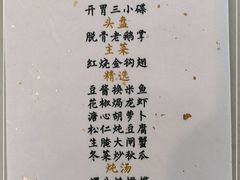 开胃三小碟
头盘
脱骨老鹅掌
主菜
红烧金钩翅
精选
豆酱米鱼
花焗龙虾
溏心胡萝卜
松仁炖豆腐
生腌大闸蟹
冬菜炒秋瓜
炖汤